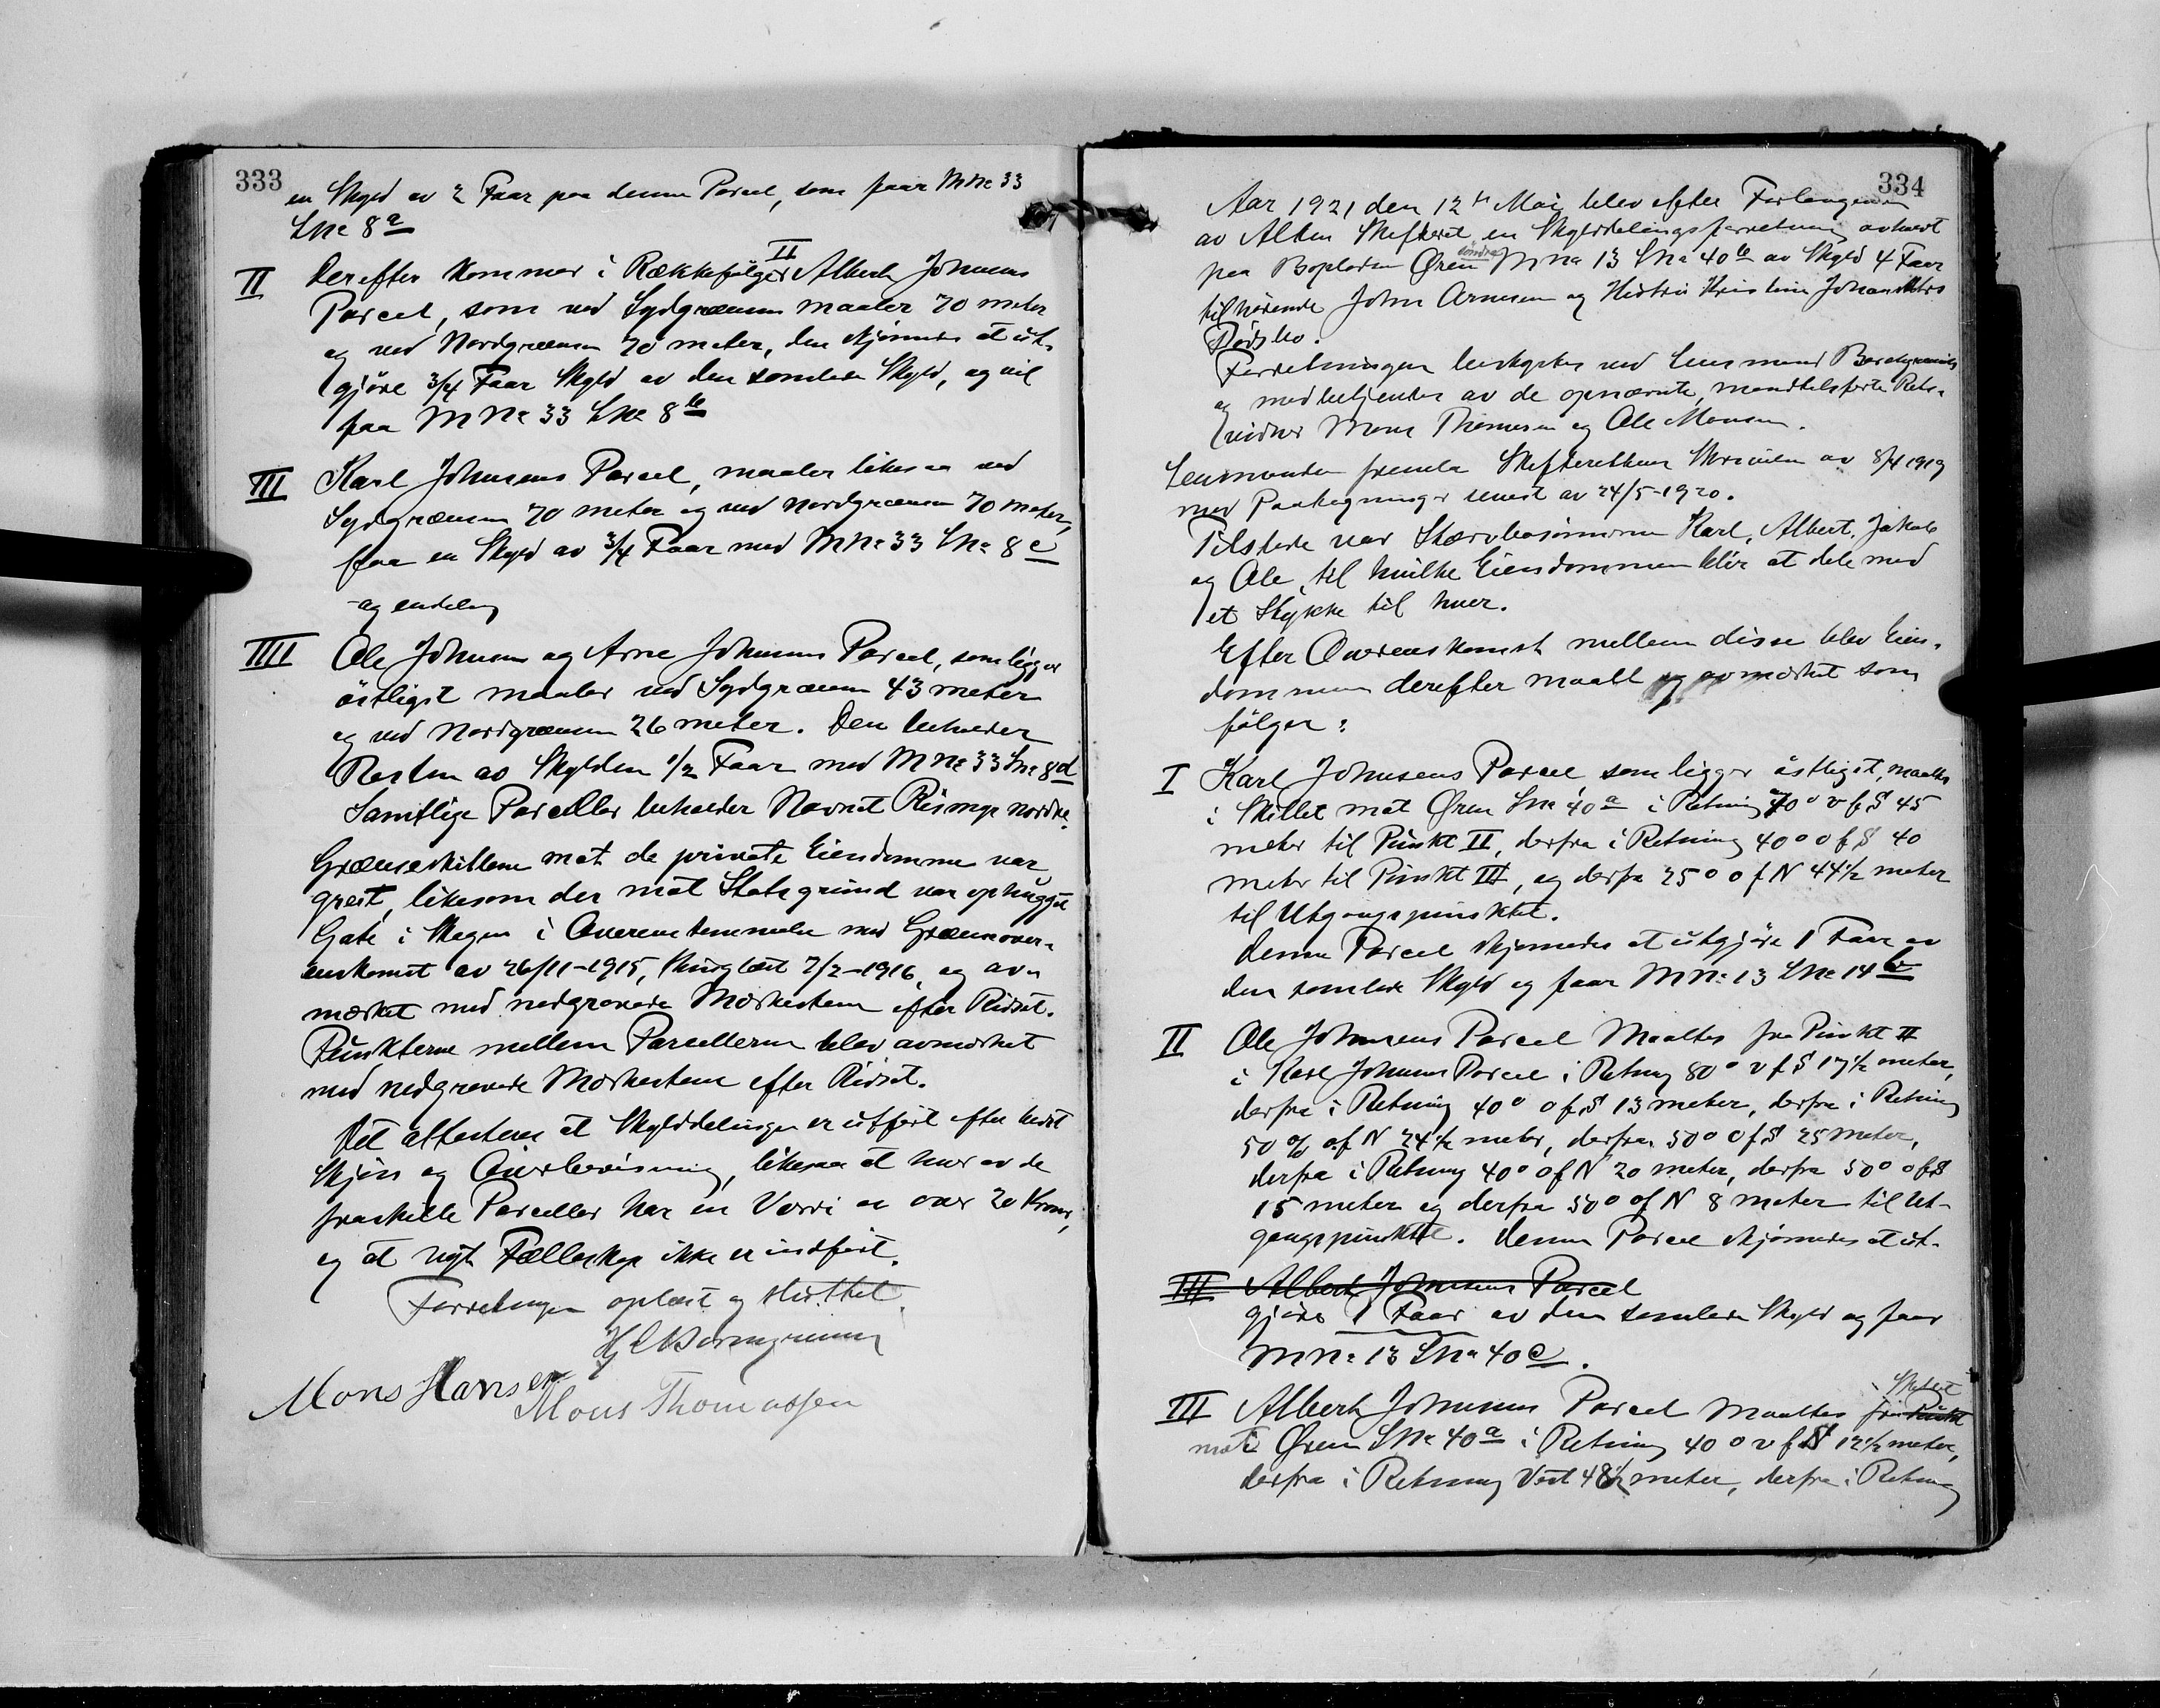 333
en Skyld av 2 Faar paa denne Parcel, som faar MNr 33
LNr 8a
II Derefter kommer i Rækkefølgen II Albert Johnsens
Parcel, som ved Sydgrænsen maaler 70 meter
og ved Nordgrænsen 70 meter, den skjønnes at ut-
gjöre 3/4 Faar Skyld av den samlede Skyld, og vil
faa MNr 33 LNr 8b
III Karl Johnsens Parcel, maaler likesaa ved
Sydgrænsen 70 meter og ved Nordgrænsen 70 meter,
faar en Skyld av 3/4 Faar med MNr 33 LNr 8c
- og endelig
IIII Ole Johnsens og Arne Johnsens Parcel, som ligger
östligst maaler ved Sydgrænsen 43 meter
og ved Nordgrænsen 26 meter. Den beholder
Resten av Skylden 1/2 Faar med MNr 33 LNr 8d
Samtlige Parceller beholder Navnet Rismyr nordre.
Grænseskillene mot de private Eiendomme var
greit, likesom der mot Statsgrund var ophugget
Gate i Skogen i Overensstemmelse med Grænseover-
enskomst av 26/11-1915, thinglæst 7/2-1916, og av-
mærket med nedgravede Mærkestene efter Ridset.
Punkterne mellem Parcellerne blev avmærket
med nedgravede Mærkestene efter Ridset.
Det attesteres at Skylddelingen er utført efter bedste
Skjön og Overbevisning, likesaa at hver av de
fraskilte Parceller har en Værdi av over 20 Kroner,
og at nyt Fælleskap ikke er indført.
Forretningen oplæst og sluttet.
Mons Hansen
Mons Thomassen
334
Aar 1921 den 12te Mai blev efter Forlangende
av Alten Skifteret en Skylddelingsforretning avholdt
paa Bopladsen Øren söndre MNr 13 LNr 40b av Skyld 4 Faar
tilhörende John Arnesen og Hustru Kristine Johansdatters
Dödsbo.
Forretningen bestyrtes ved Lensmand
og medbetjentes av de opnævnte, mandtalsførte Rets-
vidner Mons Thomesen og Ole Monsen.
Lensmanden fremla Skifterettens Skrivelse av 8/4 1919
med Paategninger senest av 24/5-1920.
Tilstede var Stervbosönnerne Karl, Albert, Jakob
og Ole, til hvilke Eiendommen blir at dele med
et Stykke til hver.
Efter Overenskomst mellem disse blev Eien-
dommen derefter maalt og avmærket som
følger:
I Karl Johnsens Parcel, som ligger östligst, maaltes
i Skillet mot Øren LNr 40a i Retning 40° v f S 45
meter til Punkt II, derfra i Retning 40° o f S 40
meter til Punkt III, og derfra 25° o f N 44 1/2 meter
til Utgangspunktet.
Denne Parcel skjønnedes at utgjöre 1 Faar av
den samlede Skyld og faar MNr 13 LNr 14b
II Ole Johnsens Parcel Maaltes fra Punkt II
i Karl Johnsens Parcel i Retning 80° v f S 17 1/2 meter,
derfra i Retning 40° o f S 13 meter, derfra i Retning
50% of N 24 1/2 meter, derfra 50° o f S 25 meter,
derfra i Retning 40° of N 20 meter, derfra 50° o f S
15 meter og derfra 50° of N 8 meter til Ut-
gangspunktet. Denne Parcel skjønnedes at ut-
III Albert Johnsens Parcel
gjöre 1 Faar av den samlede Skyld og faar
MNr 13 LNr 40c.
III Albert Johnsens Parcel Maaltes fra Punkt i Skillet
mot Øren LNr 40a i Retning 40° v f S 12 1/2 meter,
derfra i Retning Vest 48 1/2 meter, derfra i Retning